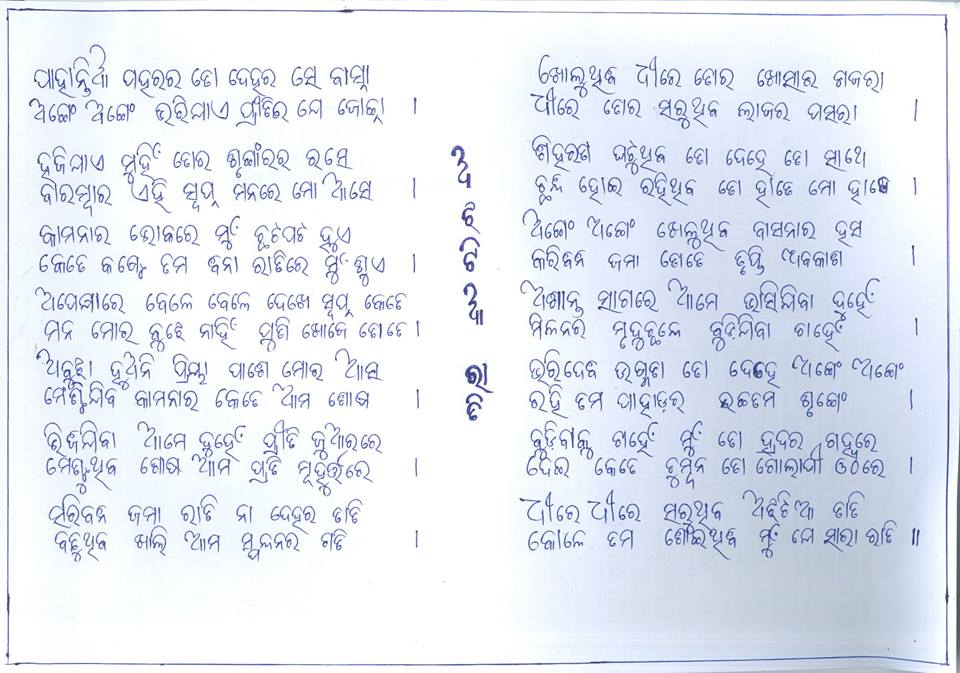 ପାହାନ୍ତିଆ ପହରର ତୋ ଦେହର ସେ ବାସ୍ନା
ଅଙ୍ଗେ ଅଙ୍ଗେ ଭରିଯାଏ ପ୍ରୀତିର ଯେ ଜୋଛନା ।
ହଜିଯାଏ ମୁହିଁ ତୋର ଶୃଙ୍ଗାରର ରସେ
ବାରମ୍ବାର ଏହି ସ୍ୱପ୍ନ ମନରେ ମୋ ଆସେ ।
କାମନାର ଭୋକରେ ମୁଁ ଛଟପଟ ହୁଏ
କେତେ କଷ୍ଟେ ତମ ବିନା ରାତିରେ ମୁଁ ଶୁଏ ।
ଅପେକ୍ଷାରେ ବେଳେ ବେଳେ ଦେଖେ ସ୍ୱପ୍ନ କେତେ
ମନ ମୋର ବୁଝେ ନାହିଁ ପୁଣି ଖୋଜେ ତୋତେ ।
ଅବୁଝା ହୁଅନି ପ୍ରିୟା ପାଶେ ମୋର ଆସ
ମେଣ୍ଟିଯିବ କାମନାର କେତେ ଆମ ଶୋଷ ।
ଭିଜିଯିବା ଆମେ ଦୁହେଁ ପ୍ରୀତି ଜୁଆରରେ
ମେଣ୍ଟୁଥିବ ଶୋଷ ଆମ ପ୍ରତି ମୂହୁର୍ତ୍ତରେ ।
ସରିବନି ଜମା ରାତି ନା ଦେହର ତାତି
ବଢୁଥିବ ଖାଲି ଆମ ସ୍ପନ୍ଦନର ଗତି ।
ଅ
ଝି
ଟି
ଆ
ରା
ତି
ଖୋଲୁଥିବି ଧୀରେ ତୋର ଖୋସାର ଗଜରା
ଧୀରେ ତୋର ସରୁଥିବ ଲାଜର ପସରା ।
ଶିହରଣ ଘଟୁଥିବ ତୋ ଦେହେ ତୋ ସାଥେ
ଛନ୍ଦି ହୋଇ ରହିଥିବ ତୋ ହାତେ ମୋ ହାତେ ।
ଅଙ୍ଗେ ଅଙ୍ଗେ ଖୋଲୁଥିବ ବାସନାର ହସ
କରିବିନି ଜମା ତୋତେ ତୃପ୍ତି ଅବକାଶ
ଅଶାନ୍ତ ସାଗରେ ଆମେ ଭାସିଯିବା ଦୁହେଁ
ମିଳନର ମୃତ୍ୟୁଛଳେ ବୁଡ଼ିଯିବା ଚାହେଁ ।
ଭରିଦେବି ଉଗ୍ମତା ତୋ ଦେହେ ଅଙ୍ଗେ ଅଙ୍ଗେ
ରହି ତମ ପାହାଡ଼ର ଉଚ୍ଚତମ ଶୃଙ୍ଗେ ।
ବୁଡ଼ିବାକୁ ଚାହେଁ ମୁଁ ତୋ ହ୍ରଦର ଗହ୍ୱରେ
ଦେଇ କେତେ ଚୁମ୍ବନ ତୋ ଗୋଲାପୀ ଓଠରେ ।
ଧୀରେ ଧୀରେ ସରୁଥିବ ଅଝିଟିଆ ରାତି
କୋଳେ ତମ ଶୋଇଥିବି ମୁଁ ଯେ ସାରା ରାତି ॥